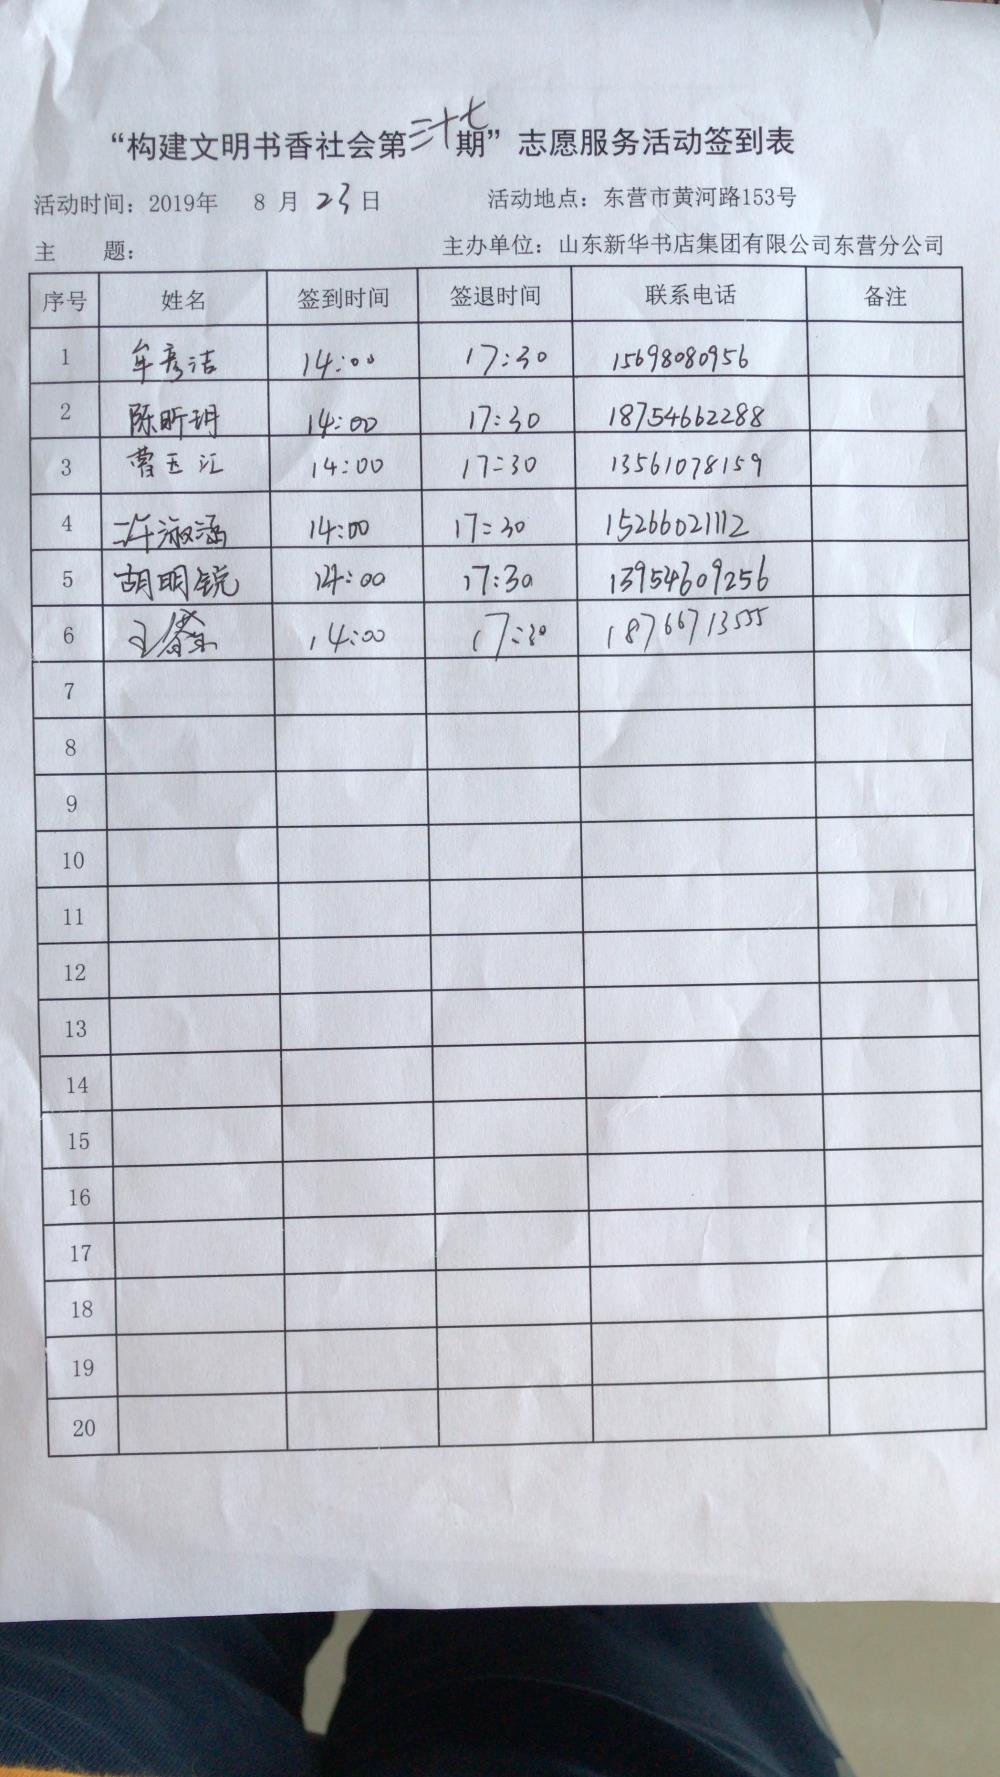 “构建文明书香社会第三十七期”志愿服务活动签到表
活动时间：2019年 8 月 23 日 活动地点：东营市黄河路153号
主 题： 主办单位：山东新华书店集团有限公司东营分公司
序号 姓名 签到时间 签退时间 联系电话 备注
1 牟彦洁 14:00 17:30 15698080956
2 陈昕玥 14:00 17:30 18754662288
3 曹玉汇 14:00 17:30 13561078159
4 许淑涵 14:00 17:30 15266021112
5 胡明锐 14:00 17:30 13954609256
6 14:00 17:30 18766713555
7
8
9
10
11
12
13
14
15
16
17
18
19
20